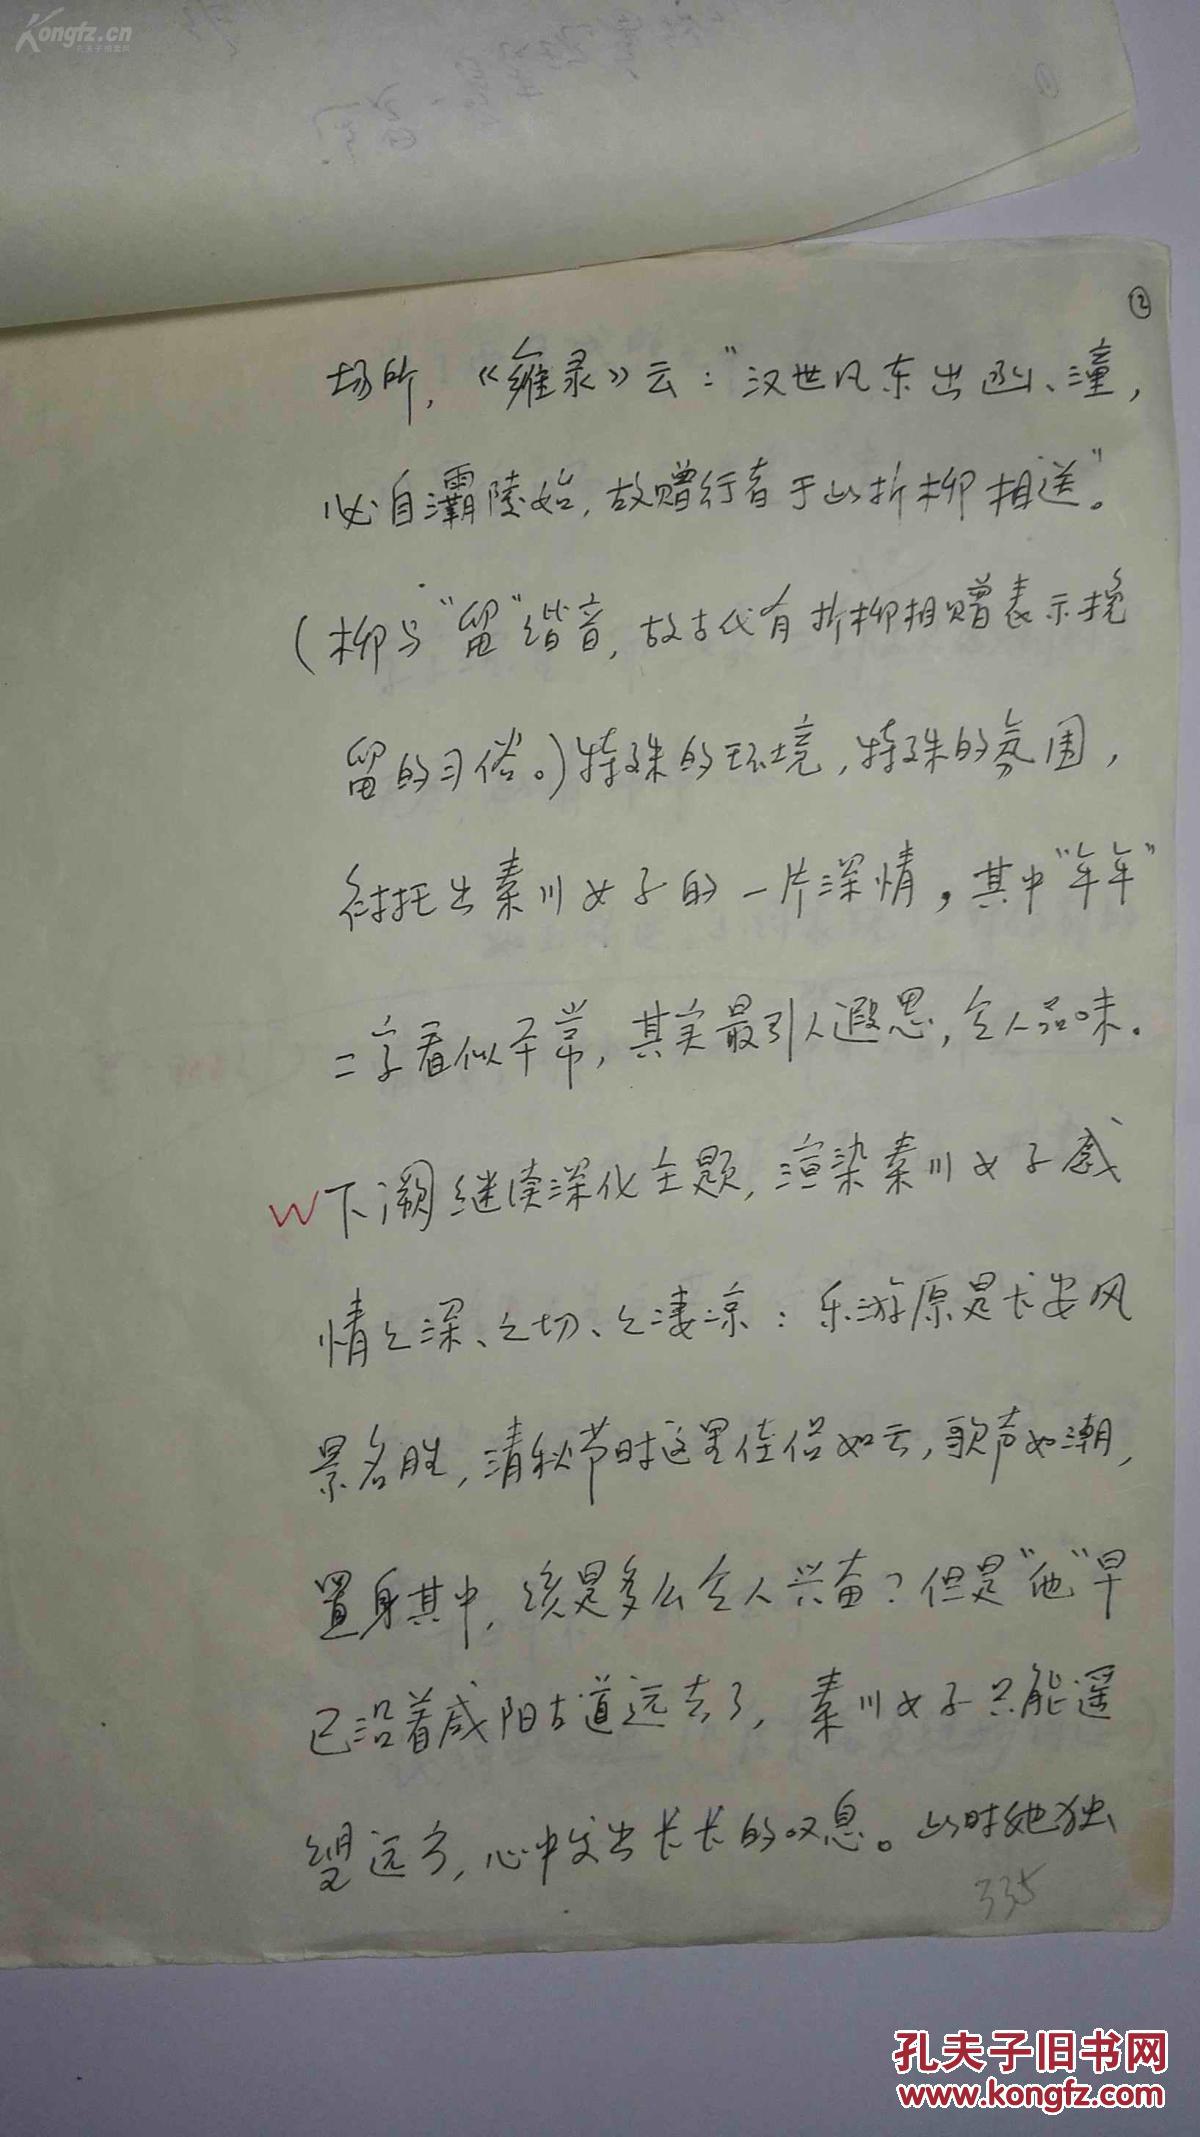 Kongfz.cn
孔夫子旧书网
②
场所,《雍录》云:"汉世凡东出函、潼,
必自灞陵始,故赠行者于此折柳相送"。
(柳与"留"谐音,故古代有折柳相赠表示挽
留的习俗。)特殊的环境,特殊的氛围,
衬托出秦川女子的一片深情,其中"年年"
二字看似平常,其实最引人遐思,令人品味。
下阕继续深化主题,渲染秦川女子感
情之深、之切、之凄凉:乐游原是长安风
景名胜,清秋节时这里佳侣如云,歌声如潮,
置身其中,该是多么令人兴奋?但是"他"早
已沿着咸阳古道远去了,秦川女子只能遥
望远方,心中发出长长的叹息。此时她独
335
孔夫子旧书网
www.kongfz.com